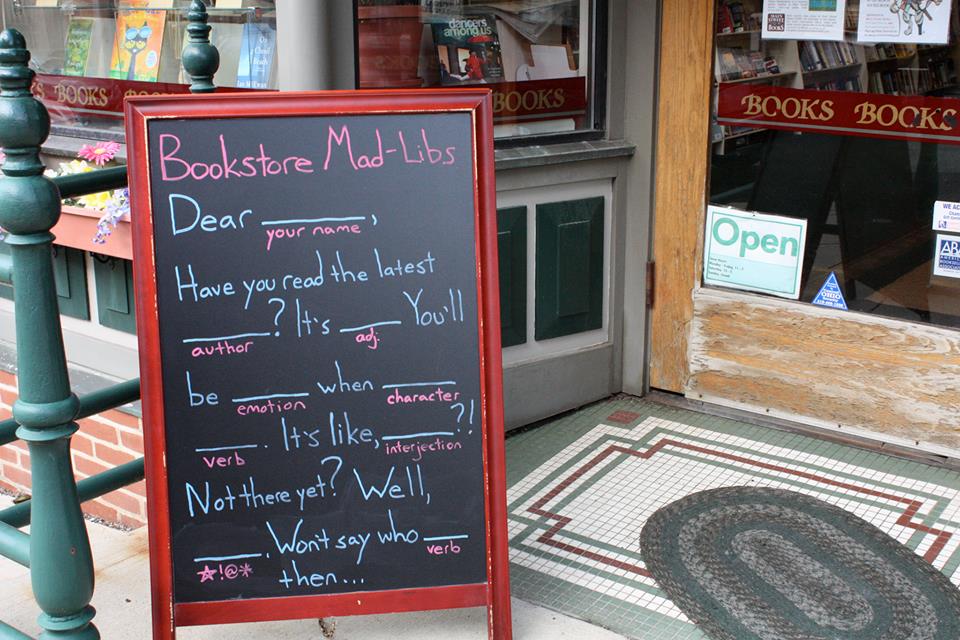 Bookstore Mad-Libs
Dear ______,
your name
Have you read the latest
______? It's ______ You'll
author adj.
be ______ when ______
emotion character
______. It's like, ______?!
verb interjection
Not there yet? Well,
______. Won't say who ______
*!@* verb
then...
BOOKS
dancers
among us
BOOKS
BOOKS BOOKS
Open
OHIO
WE AC